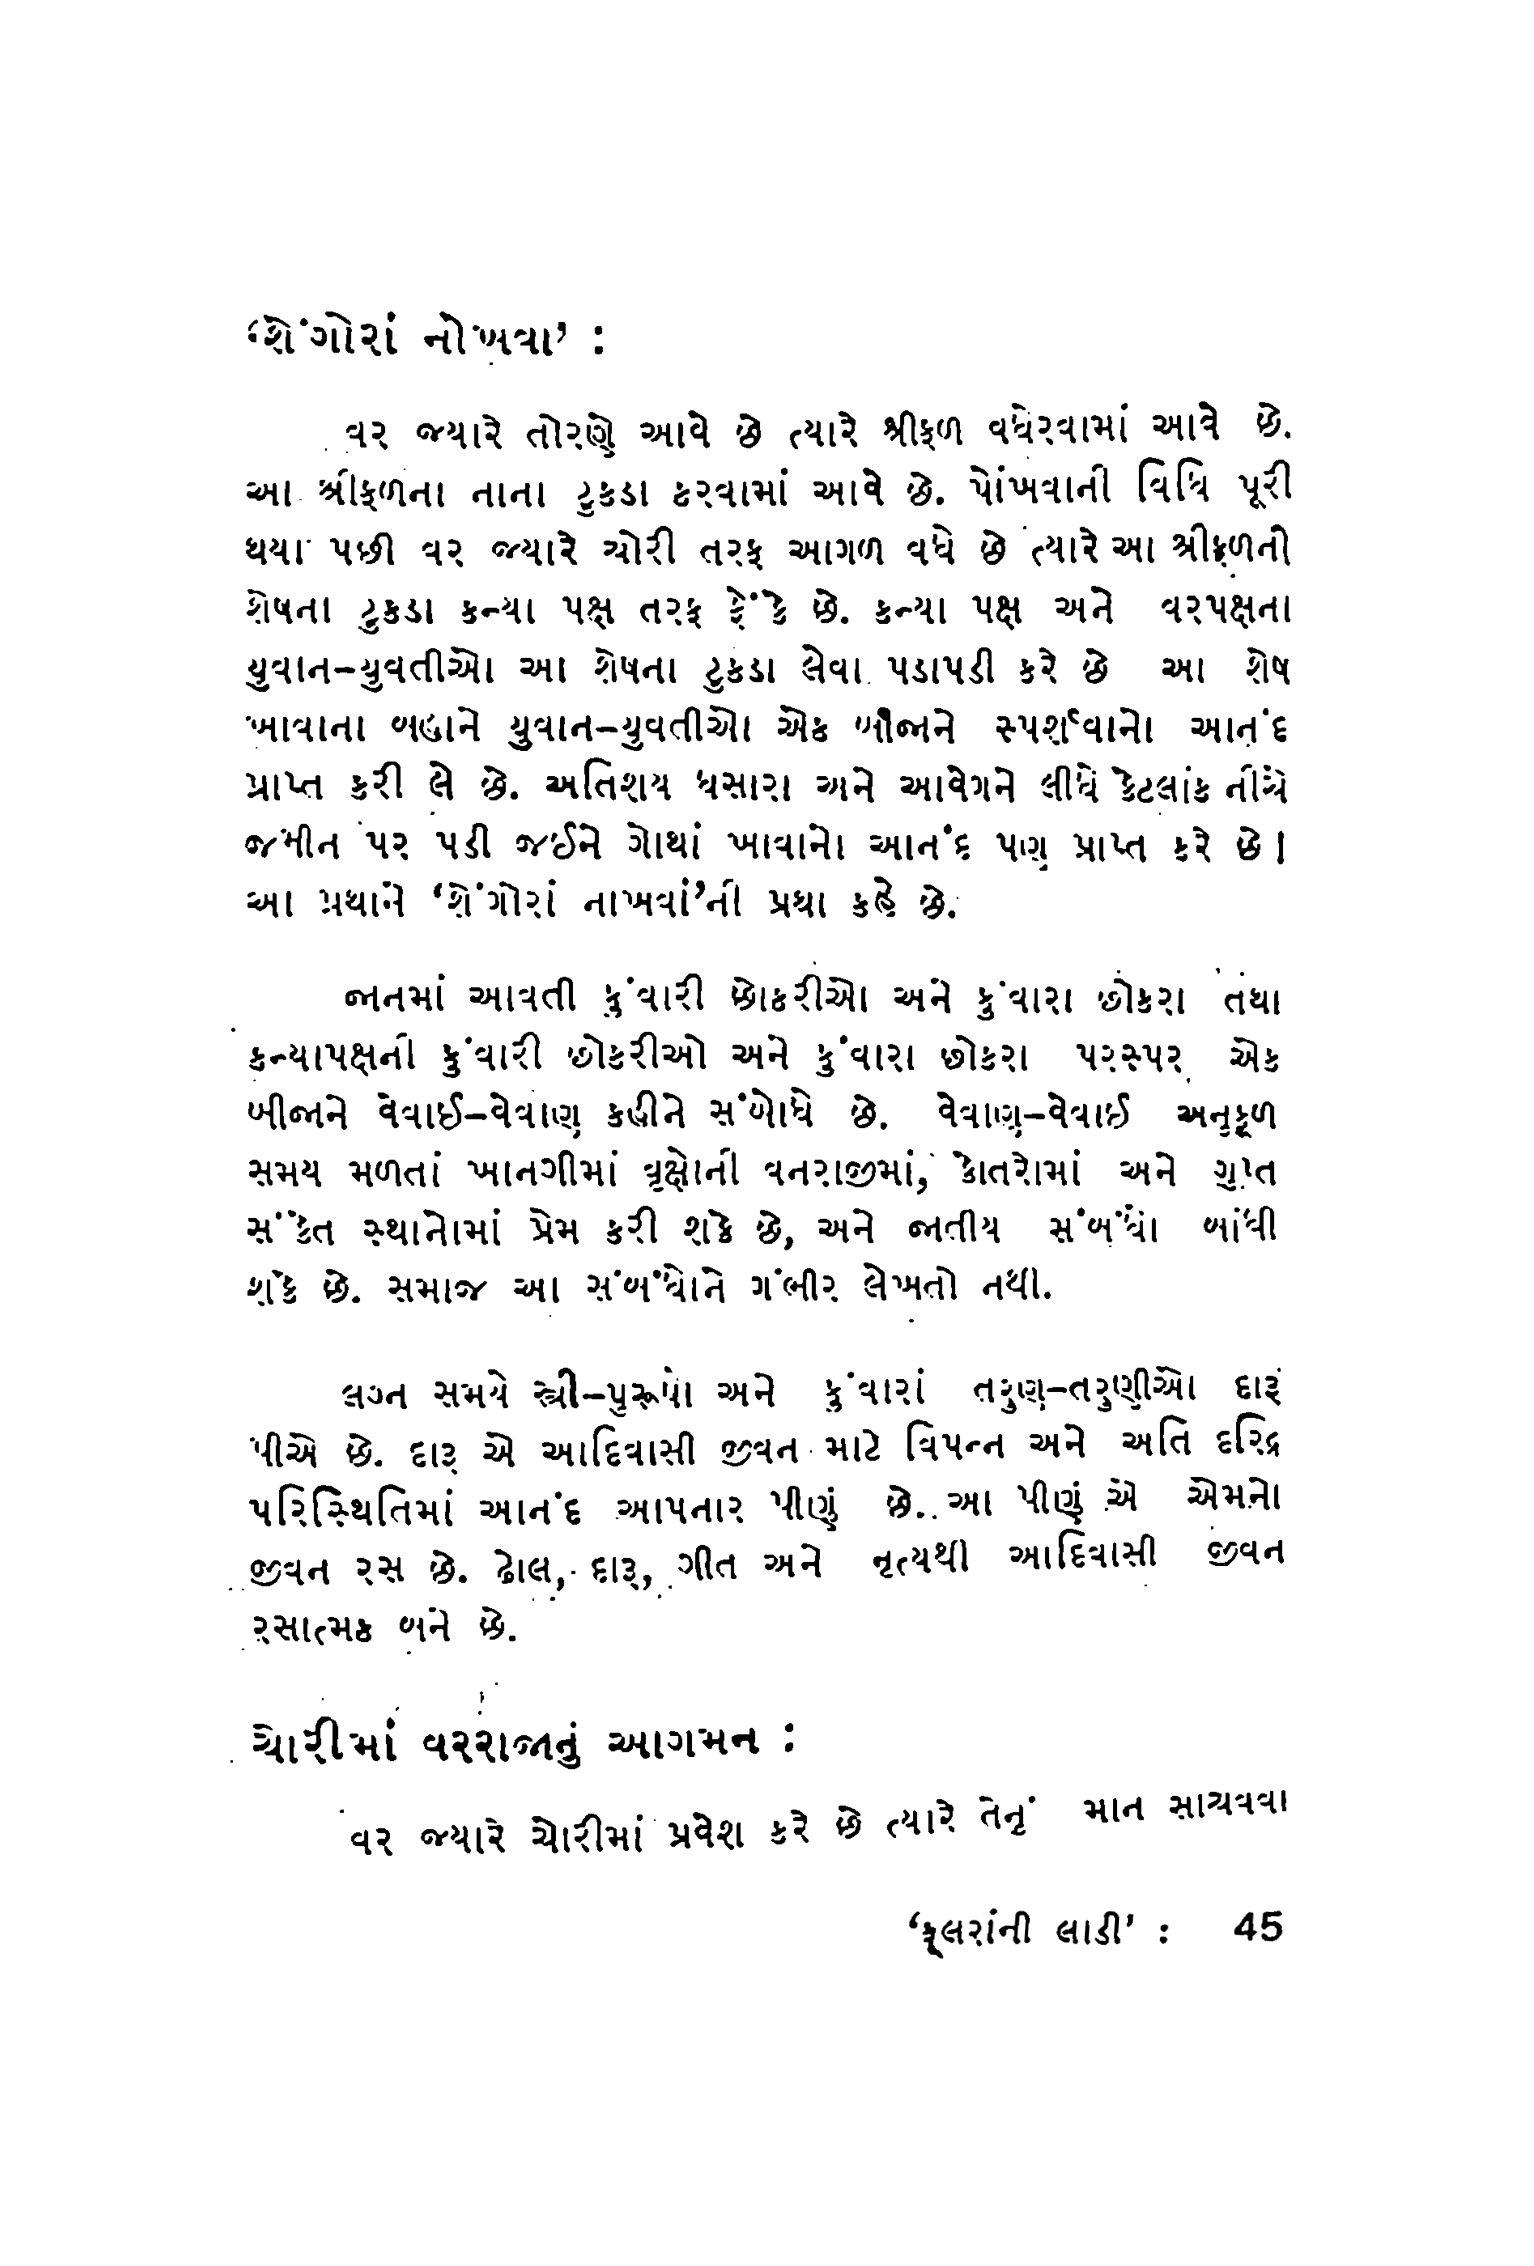 ‘શેંગોરાં નોંખવા’ :
વર જ્યારે તોરણે આવે છે ત્યારે શ્રીફળ વધેરવામાં આવે છે.
આ શ્રીફળના નાના ટુકડા કરવામાં આવે છે. પોંખવાની વિધિ પૂરી
થયા પછી વર જ્યારે ચોરી તરફ આગળ વધે છે ત્યારે આ શ્રીફળની
શેષના ટુકડા કન્યા પક્ષ તરફ ફેંકે છે. કન્યા પક્ષ અને વરપક્ષના
યુવાન–યુવતીઓ આ શેષના ટુકડા લેવા પડાપડી કરે છે આ શેષ
ખાવાના બહાને યુવાન–યુવતીઓ એક બીજાને સ્પર્શવાનો આનંદ
પ્રાપ્ત કરી લે છે. અતિશય ધસારા અને આવેગને લીધે કેટલાંક નીચે
જમીન પર પડી જઈને ગોથાં ખાવાનો આનંદ પણ પ્રાપ્ત કરે છે।
આ પ્રથાને ‘શેંગોરાં નાખવાં’ની પ્રથા કહે છે.
જાનમાં આવતી કુંવારી છોકરીઓ અને કુંવારા છોકરા તથા
કન્યાપક્ષની કુંવારી છોકરીઓ અને કુંવારા છોકરા પરસ્પર એક
બીજાને વેવાઈ–વેવાણ કહીને સંબોધે છે. વેવાણ–વેવાઈ અનુકૂળ
સમય મળતાં ખાનગીમાં વૃક્ષોની વનરાજીમાં, કોતરોમાં અને ગુપ્ત
સંકેત સ્થાનોમાં પ્રેમ કરી શકે છે, અને જાતીય સંબંધો બાંધી
શકે છે. સમાજ આ સંબંધોને ગંભીર લેખતો નથી.
લગ્ન સમયે સ્ત્રી–પુરૂષો અને કુંવારાં તરુણ–તરુણીઓ દારૂ
પીએ છે. દારૂ એ આદિવાસી જીવન માટે વિપન્ન અને અતિ દરિદ્ર
પરિસ્થિતિમાં આનંદ આપનાર પીણું છે. આ પીણું એ એમનો
જીવન રસ છે. ઢોલ, દારૂ, ગીત અને નૃત્યથી આદિવાસી જીવન
રસાત્મક બને છે.
ચોરીમાં વરરાજાનું આગમન :
વર જ્યારે ચોરીમાં પ્રવેશ કરે છે ત્યારે તેનું માન સાચવવા
‘ફૂલરાંની લાડી’ : 45